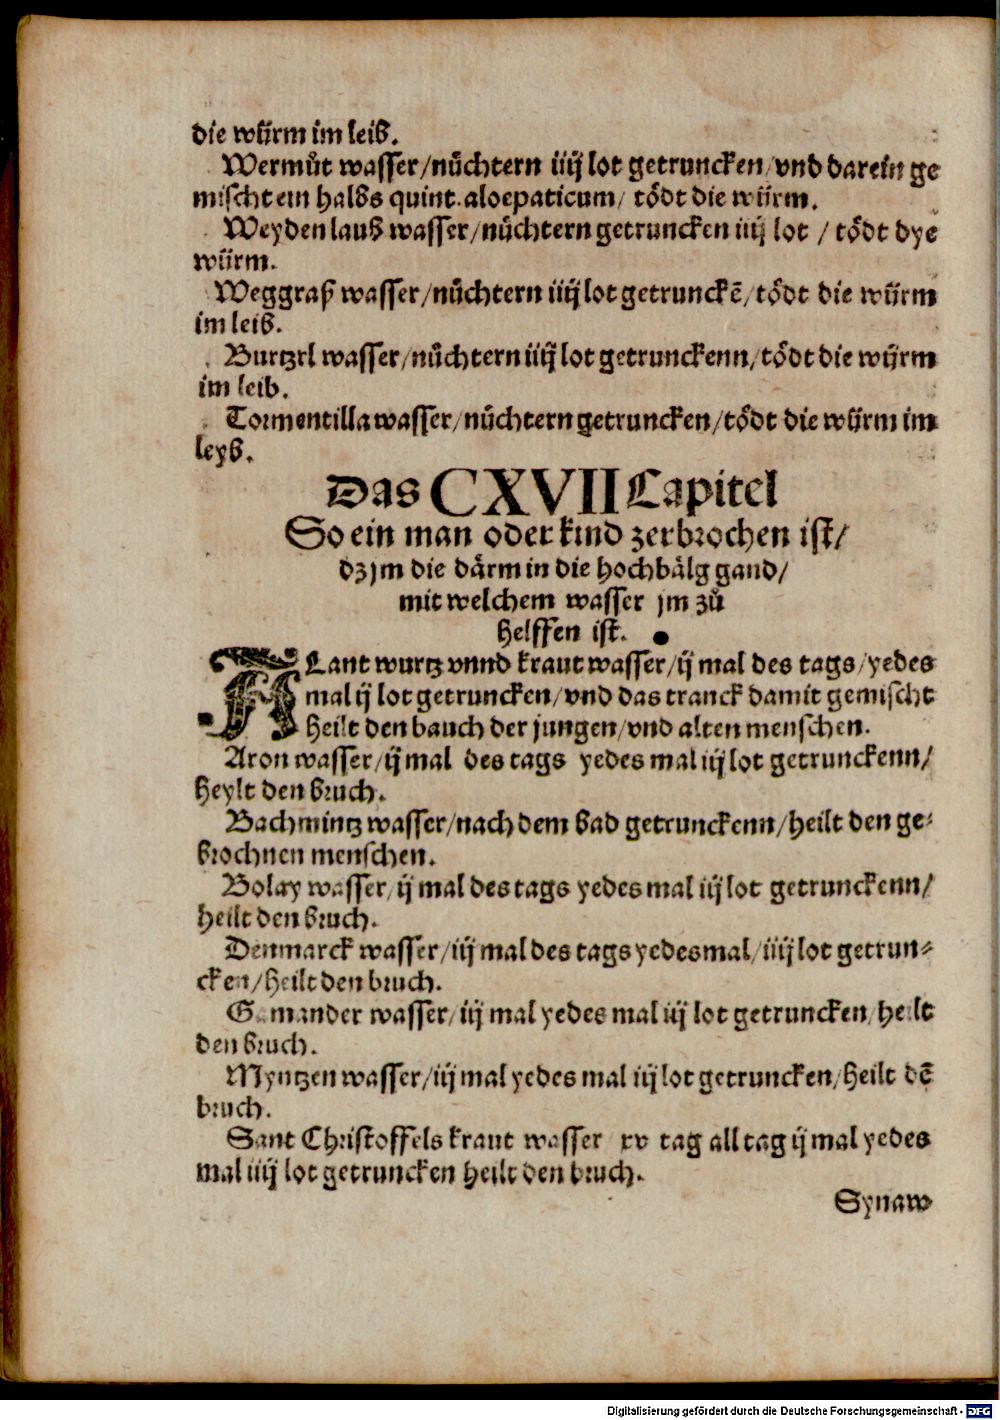 die würm im leib.
Wermůt wasser/nůchtern iiij lot getruncken/vnd darein ge
mischt ein halbs quint. aloepaticum/ tödt die würm.
Weyden laub wasser/nůchtern getruncken iiij lot / tödt dye
würm.
Weggraß wasser/nůchtern iiij lot getrunckē/tödt die würm
im leib.
Burtzel wasser/nůchtern iiij lot getrunckenn/tödt die würm
im leib.
Tormentilla wasser/nůchtern getruncken/tödt die würm im
leyb.
Das CXVII Capitel
So ein man oder kind zerbrochen ist/
dz jm die därm in die hochbälg gand/
mit welchem wasser jm zů
helffen ist.
ALant wurtz vnnd kraut wasser/ij mal des tags/yedes
mal ij lot getruncken/vnd das tranck damit gemischt
heilt den bauch der jungen/vnd alten menschen.
Aron wasser/ij mal des tags yedes mal iij lot getrunckenn/
heylt den bruch.
Bachmintz wasser/nach dem bad getrunckenn/heilt den ge-
brochnen menschen.
Bolay wasser/ij mal des tags yedes mal iij lot getrunckenn/
heilt den bruch.
Denmarck wasser/iij mal des tags yedesmal/iiij lot getrun-
cken/heilt den bruch.
Gamander wasser/iij mal yedes mal iij lot getruncken/heilt
den bruch.
Myntzen wasser/iij mal yedes mal iij lot getruncken/heilt dē
bruch.
Sant Christoffels kraut wasser xv tag all tag ij mal yedes
mal iiij lot getruncken heilt den bruch.
Synaw
Digitalisierung gefördert durch die Deutsche Forschungsgemeinschaft - DFG